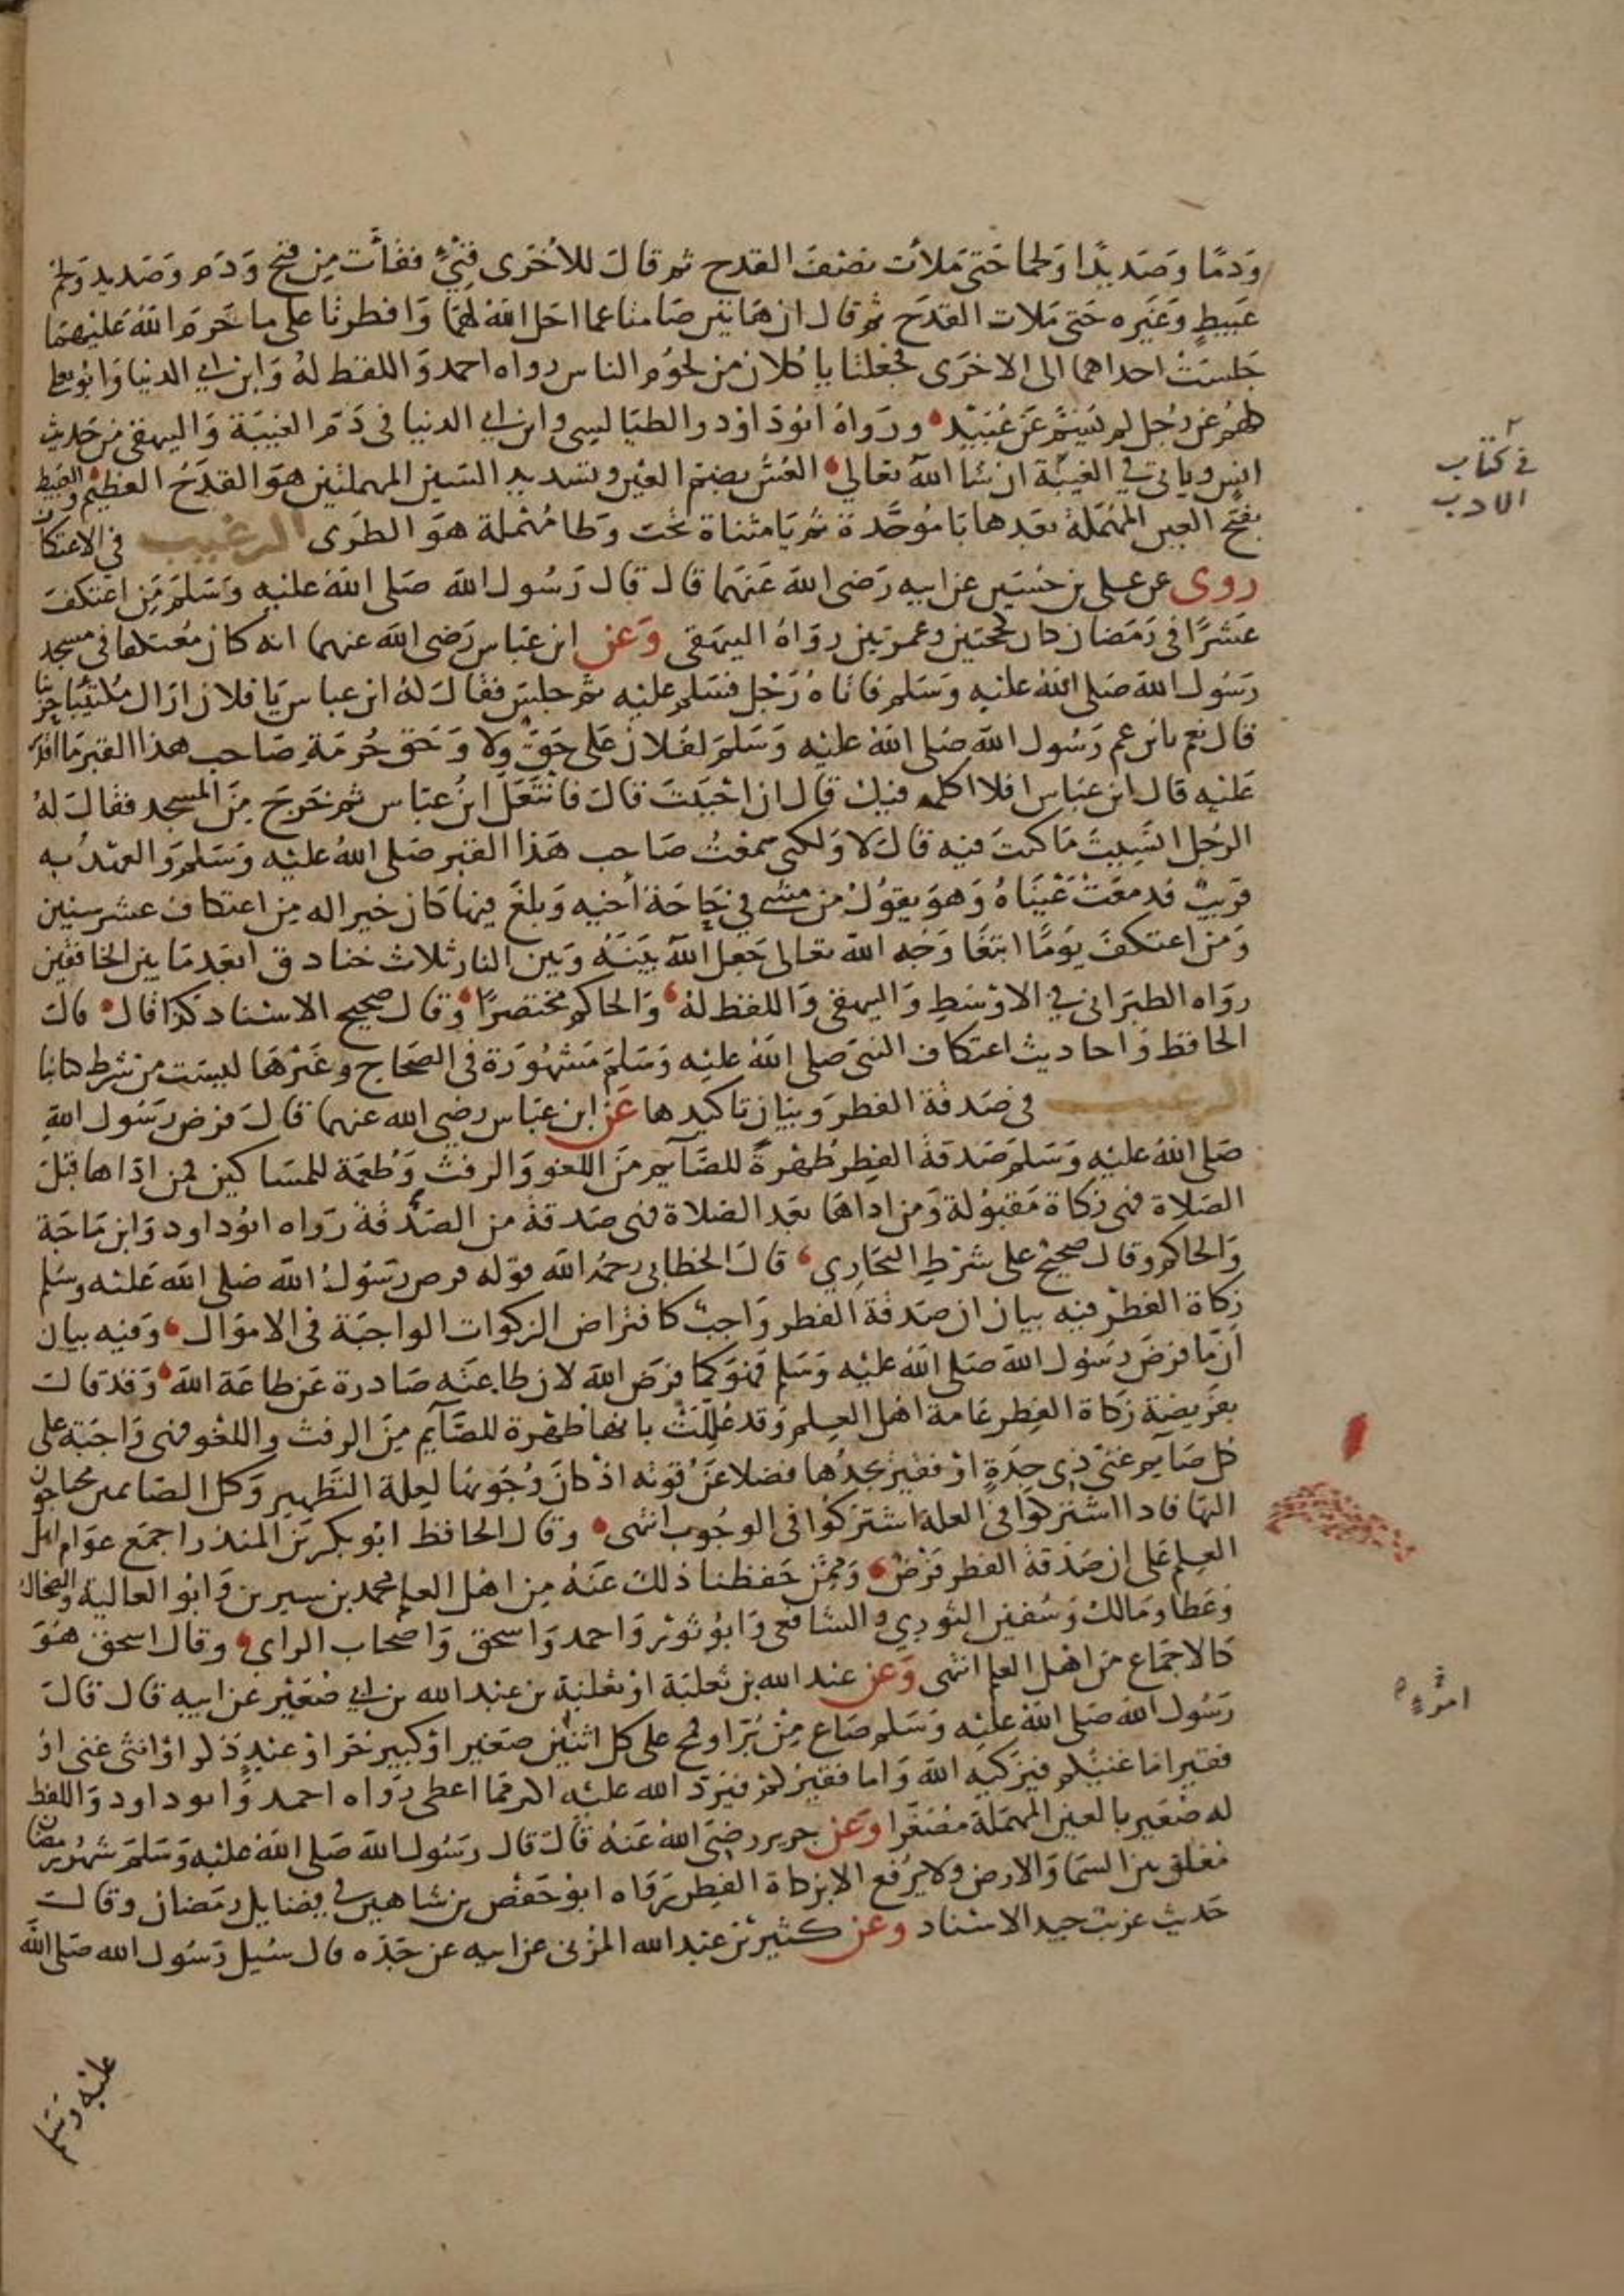 ودمًا وصديدًا ولحما حتى ملأت نصف القدح ثم قال للأخرى قيئي فقأت من قيح ودم وصديد ولحم
عبيط وغيره حتى ملات القدح ثم قال ان هاتين صامتا عما احل الله لهما وافطرتا على ما حرم الله عليهما
جلست احداهما الى الاخرى فجعلتا ياكلان من لحوم الناس رواه احمد واللفظ له وابن ابي الدنيا وابو يعلى
كلهم عن رجل لم يسم عن عبيد ورواه ابو داود والطيالسي وابن ابي الدنيا في ذم الغيبة والبيهقي من حديث
انس وياتي في الغيبة ان شا الله تعالى العس بضم العين وتشديد السين المهملتين هو القدح العظيم والعبيط
بفتح العين المهملة بعدها با موحدة ثم يا مثناة تحت وطا مهملة هو الطرى الترغيب في الاعتكاف
روى عن على بن حسين عن ابيه رضى الله عنهما قال قال رسول الله صلى الله عليه وسلم من اعتكف
عشرًا فى رمضان كان كحجتين وعمرتين رواه البيهقى وعن ابن عباس رضى الله عنهما انه كان معتكفا فى مسجد
رسول الله صلى الله عليه وسلم فاتاه رجل فسلم عليه ثم جلس فقال له ابن عباس يا فلان اراك مكتئبا حزينا
قال نعم يابن عم رسول الله صلى الله عليه وسلم لفلان على حق ولا وحق حرمة صاحب هذا القبر ما اقدر
عليه قال ابن عباس افلا اكلمه فيك قال ان احببت قال فانتعل ابن عباس ثم خرج من المسجد فقال له
الرجل انسيت ما كنت فيه قال لا ولكنى سمعت صاحب هذا القبر صلى الله عليه وسلم والعهد به
قريب فدمعت عيناه وهو يقول من مشى في حاجة أخيه وبلغ فيها كان خيرا له من اعتكاف عشر سنين
ومن اعتكف يومًا ابتغا وجه الله تعالى جعل الله بينه وبين النار ثلاث خنادق ابعد ما بين الخافقين
رواه الطبرانى في الاوسط والبيهقى واللفظ له والحاكم مختصرًا وقال صحيح الاسناد كذا قال قال
الحافظ واحاديث اعتكاف النبى صلى الله عليه وسلم مشهورة فى الصحاح وغيرها ليست من شرط كتابنا
الترغيب فى صدقة الفطر وبيان تاكيدها عن ابن عباس رضى الله عنهما قال فرض رسول الله
صلى الله عليه وسلم صدقة الفطر طهرة للصآيم من اللغو والرفث وطعمة للمساكين فمن اداها قبل
الصلاة فهى زكاة مقبولة ومن اداها بعد الصلاة فهى صدقة من الصدقة رواه ابوداود وابن ماجة
والحاكم وقال صحيح على شرط البخاري قال الخطابى رحمه الله قوله فرض رسول الله صلى الله عليه وسلم
زكاة الفطر فيه بيان ان صدقة الفطر واجب كافتراض الزكوات الواجبة فى الاموال وفيه بيان
أن ما فرض رسول الله صلى الله عليه وسلم فهو كما فرض الله لان طاعته صادرة عن طاعة الله وقد قالت
بفريضة زكاة الفطر عامة اهل العلم وقد عللت بانها طهرة للصآيم من الرفث واللغو فهى واجبة على
كل صآيم غنى ذى جدة او فقير يجدها فضلا عن قوته اذ كان وجوبها لعلة التطهير وكل الصائمين محتاجون
اليها فاذا اشتركوا فى العلة اشتركوا فى الوجوب انتهى وقال الحافظ ابو بكر بن المنذر اجمع عوام اهل
العلم على ان صدقة الفطر فرض وممن حفظنا ذلك عنه من اهل العلم محمد بن سيرين وابو العالية والضحاك
وعطا ومالك وسفين الثوري والشافعى وابو ثور واحمد واسحق واصحاب الراي وقال اسحق هو
كالاجماع من اهل العلم انتهى وعن عبد الله بن ثعلبة او ثعلبة بن عبد الله بن ابي صُعَيْر عن ابيه قال قال
رسول الله صلى الله عليه وسلم صاع من بُرّ او قمح على كل اثنين صغير او كبير حر او عبد ذكر او انثى غنى او
فقير اما غنيكم فيزكيه الله واما فقيركم فيرد الله عليه اكثر مما اعطى رواه احمد وابو داود واللفظ
له صعير بالعين المهملة مصغرا وعن جرير رضى الله عنه قال قال رسول الله صلى الله عليه وسلم شهر رمضان
معلق بين السما والارض ولا يرفع الا بزكاة الفطر رواه ابو حفص بن شاهين في فضايل رمضان وقال
حديث غريب جيد الاسناد وعن كثير بن عبد الله المزنى عن ابيه عن جده قال سئيل رسول الله صلى الله
عليه وسلم
في كتاب
الادب
امرئ